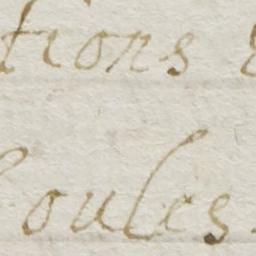 tions
soules